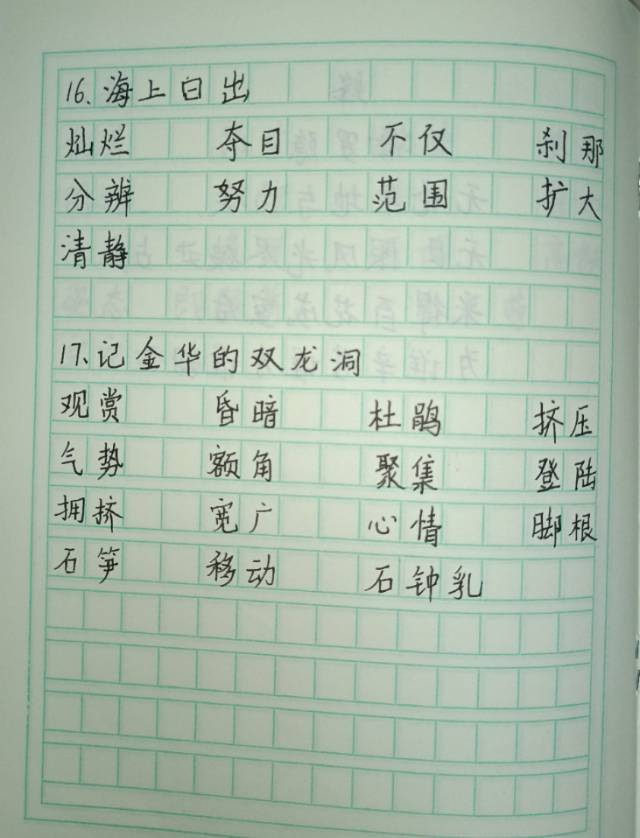 16、海上日出
灿烂 夺目 不仅 刹那
分辨 努力 范围 扩大
清静
17、记金华的双龙洞
观赏 昏暗 杜鹃 挤压
气势 额角 聚集 登陆
拥挤 宽广 心情 脚根
石笋 移动 石钟乳